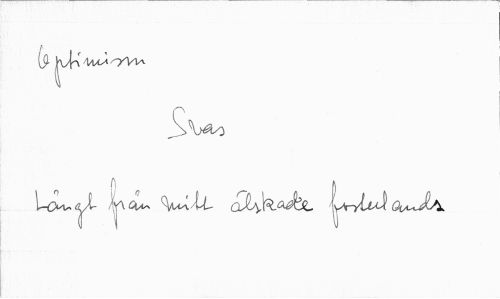 Optimism
Svas
Långt från mitt älskade fosterlands